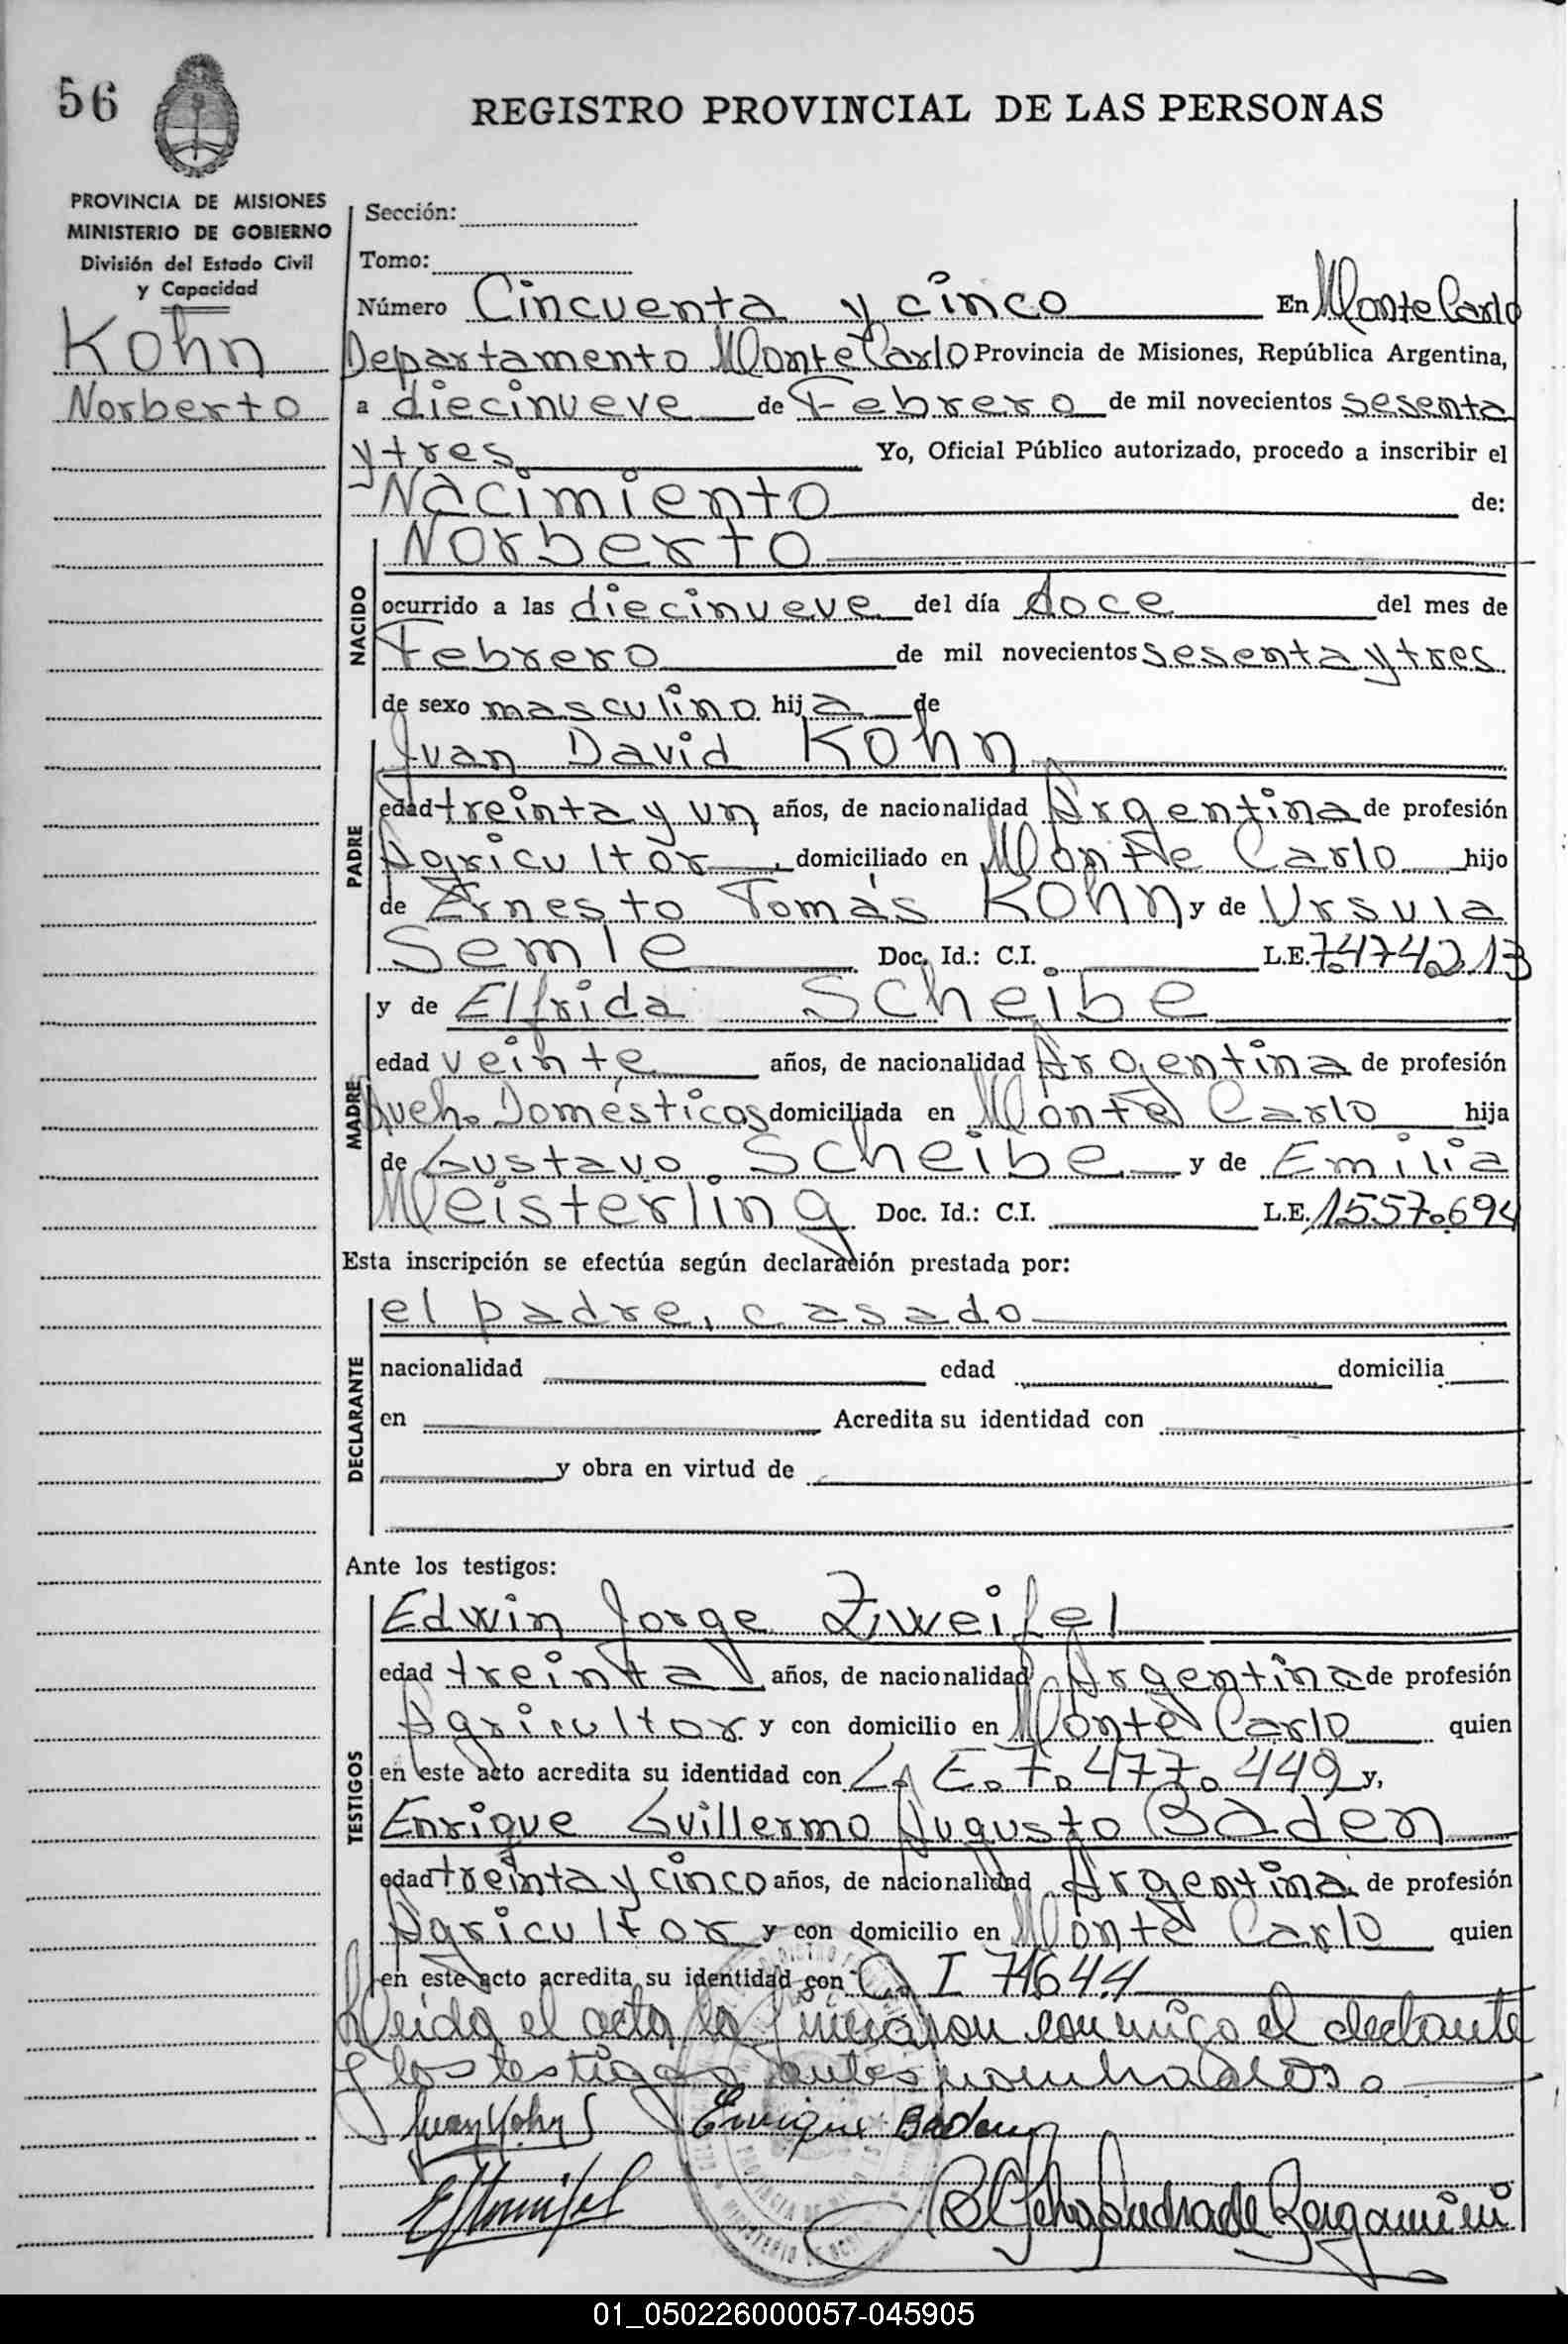 56
REGISTRO PROVINCIAL DE LAS PERSONAS
PROVINCIA DE MISIONES
MINISTERIO DE GOBIERNO
División del Estado Civil
y Capacidad
Kohn
Norberto
Sección:
Tomo:
Número Cincuenta y cinco En Monte Carlo
Departamento Monte Carlo Provincia de Misiones, República Argentina,
a diecinueve de Febrero de mil novecientos sesenta
y tres Yo, Oficial Público autorizado, procedo a inscribir el
Nacimiento de:
NACIDO
Norberto
ocurrido a las diecinueve del día doce del mes de
Febrero de mil novecientos sesenta y tres
de sexo masculino hija de
PADRE
Juan David Kohn
edad treinta y un años, de nacionalidad Argentina de profesión
Agricultor, domiciliado en Monte Carlo hijo
de Ernesto Tomás Kohn y de Ursula
Semle Doc. Id.: C.I. L.E. 7.474.213
MADRE
y de Elfrida Scheibe
edad veinte años, de nacionalidad Argentina de profesión
Queh. Domésticos domiciliada en Monte Carlo hija
de Gustavo Scheibe y de Emilia
Meisterling Doc. Id.: C.I. L.E. 1557.694
Esta inscripción se efectúa según declaración prestada por:
DECLARANTE
el padre, casado
nacionalidad edad domicilia
en Acredita su identidad con
y obra en virtud de
Ante los testigos:
TESTIGOS
Edwin Jorge Zweifel
edad treinta años, de nacionalidad Argentina de profesión
Agricultor y con domicilio en Monte Carlo quien
en este acto acredita su identidad con L. E. 7.477.449 y,
Enrique Guillermo Augusto Baden
edad treinta y cinco años, de nacionalidad Argentina de profesión
Agricultor y con domicilio en Monte Carlo quien
en este acto acredita su identidad con C. I 71644
Leida el acta, la firmaron conmigo el declarante
y los testigos antes nombrados.
Juan Kohn Enrique Baden
de Bergamini
01_050226000057-045905